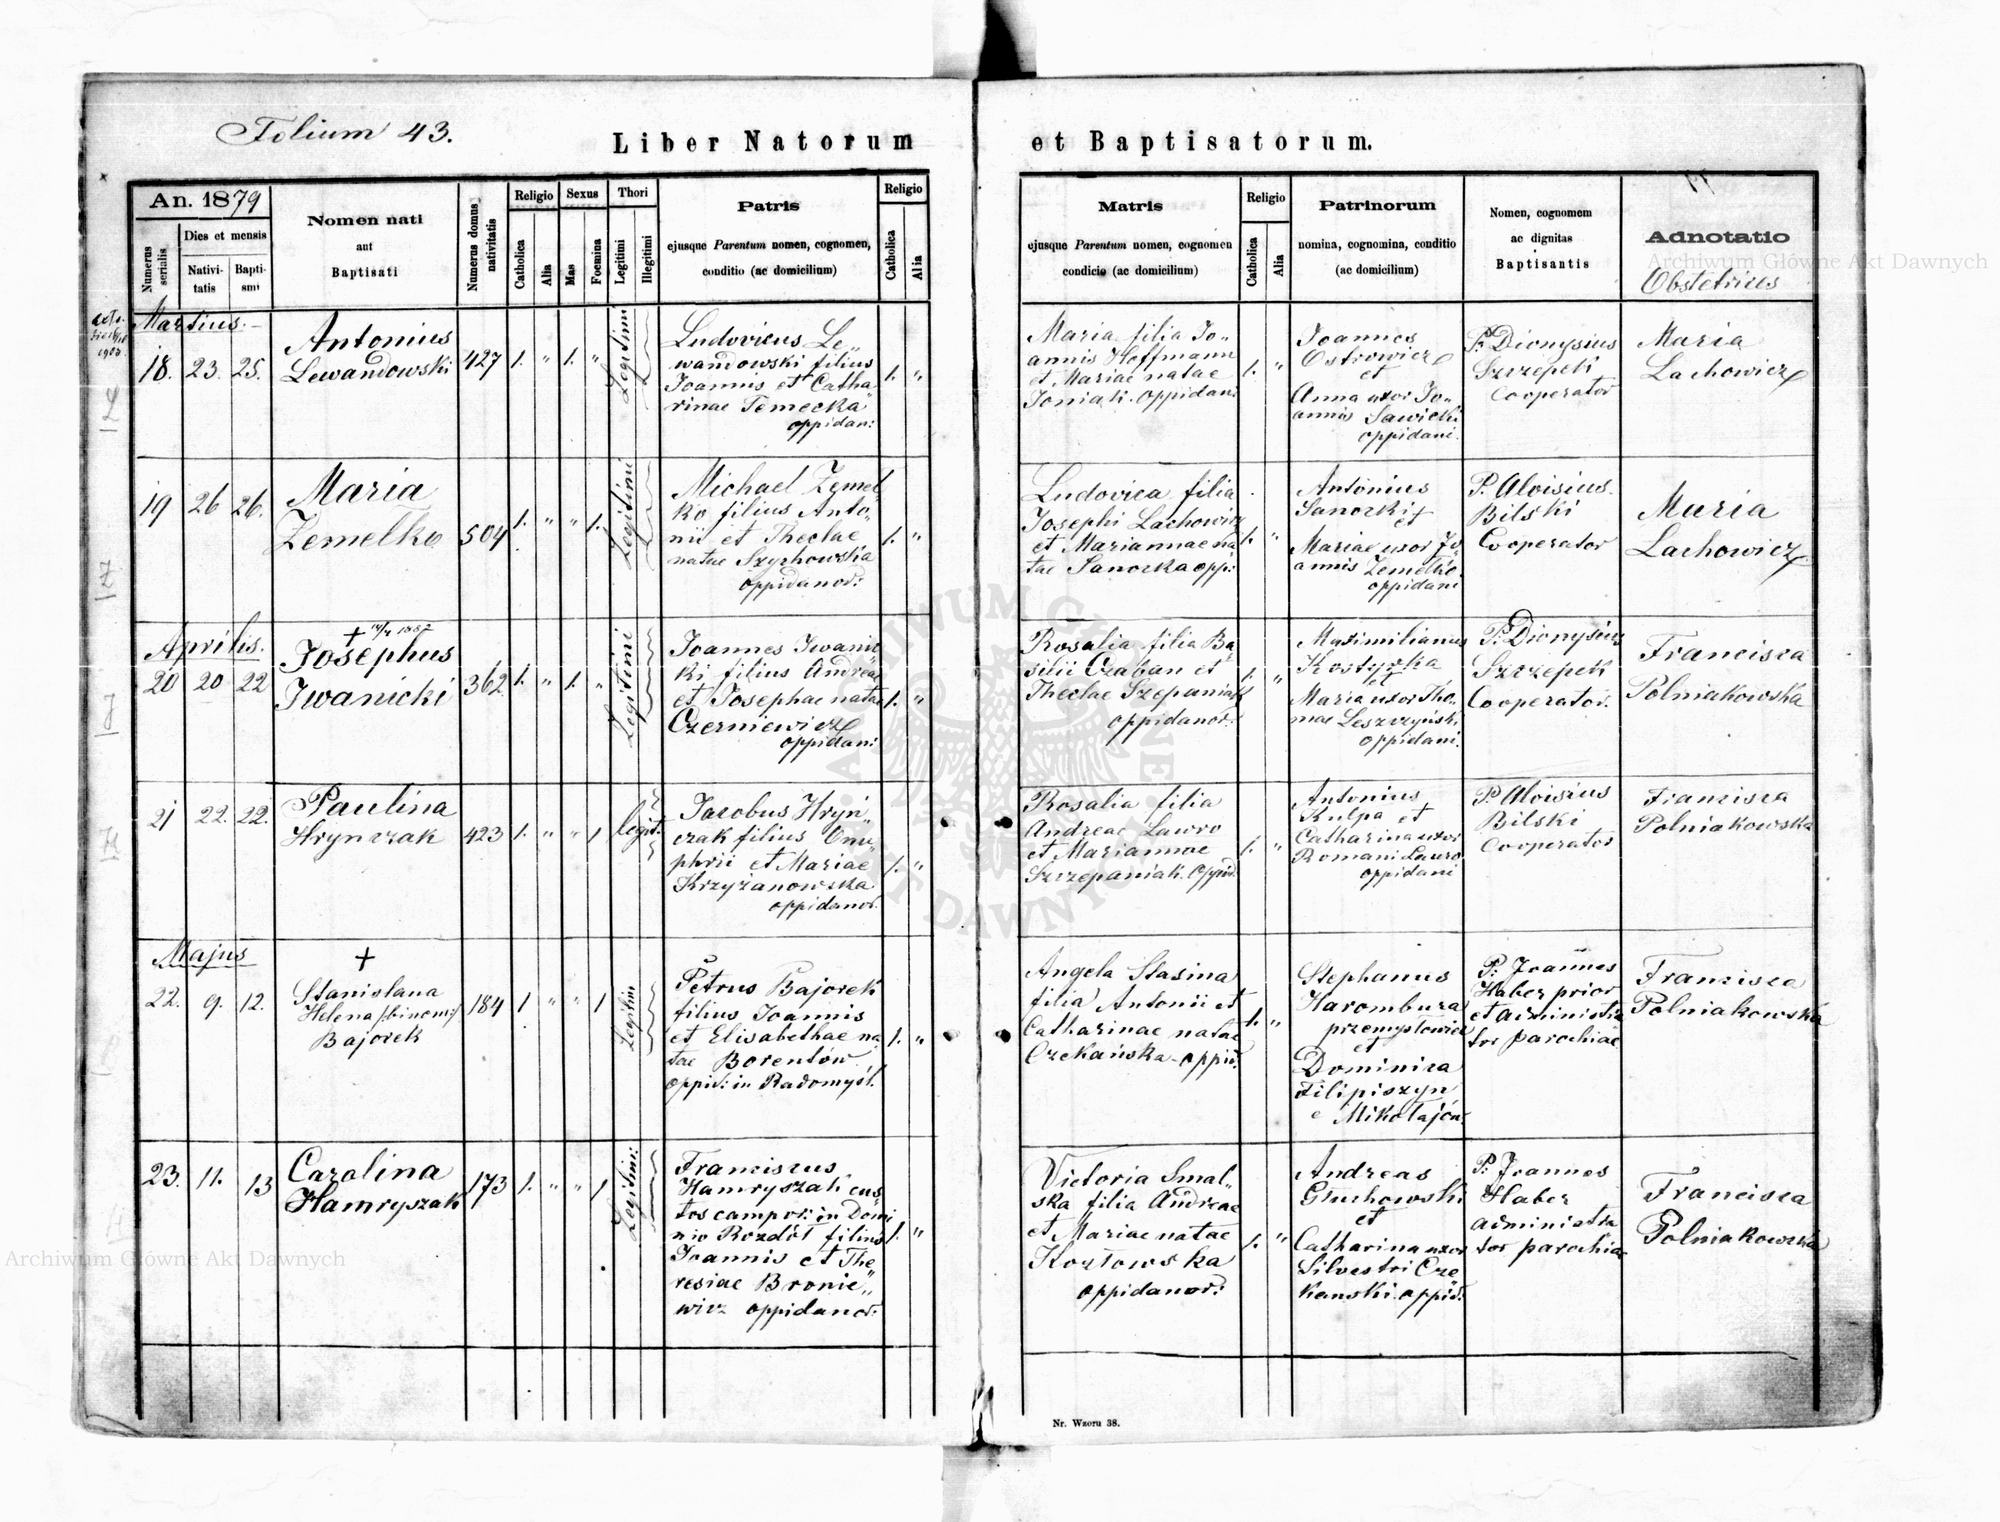 Folium 43.
Liber Natorum et Baptisatorum.
An. 1879
Numerus serialis
Dies et mensis
Nativitatis
Baptismi
Nomen nati
aut
Baptisati
Numerus domus nativitatis
Religio
Catholica
Alia
Sexus
Mas
Foemina
Thori
Legitimi
Illegitimi
Patris
ejusque Parentum nomen, cognomen,
conditio (ac domicilium)
Religio
Catholica
Alia
Matris
ejusque Parentum nomen, cognomen
condicio (ac domicilium)
Religio
Catholica
Alia
Patrinorum
nomina, cognomina, conditio
(ac domicilium)
Nomen, cognomem
ac dignitas
Baptisantis
Adnotatio
Obstetrices
Martius.
18. 23. 25.
Antonius
Lewandowski
427 1. " 1. "
Legitimi
Ludovicus Le„
wandowski filius
Joannis et Catha
rinae Temecka
oppidani
1. "
Maria filia Jo„
annis Hoffmann
et Mariae natae
Joniak. oppidani
1. "
Joannes
Ostrowicz
et
Anna uxor Jo„
annis Sawicki
oppidani.
P. Dionysius
Szczepek
Cooperator
Maria
Lachowicz
19 26 26.
Maria
Zemelko
504 1. " " 1.
Legitimi
Michael Zemel
ko filius Anto„
nii et Theclae
natae Szychowska
oppidanor:
1. "
Ludovica filia
Josephi Lachowicz
et Mariannae na
tae Sanocka opp:
1. "
Antonius
Sanocki et
Mariae uxor Jo„
annis Zemelko
oppidani
P. Aloisius
Bilski
Cooperator
Maria
Lachowicz
Aprilis.
20 20 22
Josephus
Iwanicki
362 1. " 1. "
Legitimi
Joannes Iwanic
ki filius Andreae
et Josephae natae
Czerniewicz
oppidani
1. "
Rosalia filia Ba
silii Czaban et
Theclae Szepaniak
oppidanor:
1. "
Maximilianus
Kostyrka
et
Maria uxor Tho„
mae Leszczyński
oppidani.
P. Dionysius
Szczepek
Cooperator.
Francisca
Polniakowska
21 22. 22.
Paulina
Hrynczak
423 1. " " 1
legit.
Jacobus Hryn„
czak filius Onu„
phrii et Mariae
Krzyżanowska
oppidanor.
1. "
Rosalia filia
Andreae Lawro
et Mariannae
Szczepaniak. Oppid.
1. "
Antonius
Kulpa et
Catharina uxor
Romani Lawro
oppidani
P. Aloisius
Bilski
Cooperator
Francisca
Polniakowska
Majus
22. 9. 12.
Stanislaua
Helena
Bajorek
184 1 " " 1
Legitim
Petrus Bajorek
filius Joannis
et Elisabethae na
tae Borentów
oppid: in Radomyśl.
1. "
Angela Stasina
filia Antonii et
Catharinae natae
Czekańska. oppid.
1. "
Stephanus
Harombura
przemysłowiec
et
Dominica
Filipiszyn
e Mikołajów.
P. Joannes
Haber prior
et administra
tor parochiae
Francisca
Polniakowska
23. 11. 13
Carolina
Hamryszak
173 1. " " 1
Legitimi
Franciscus
Hamryszak cus
tos campor: in Domi
nio Rozdół filius
Joannis et The
resiae Bronie„
wicz oppidanor.
1. "
Victoria Smal„
ska filia Andreae
et Mariae natae
Kozłowska
oppidanor:
1. "
Andreas
Głuchowski
et
Catharina uxor
Silvestri Cze
kanski. oppid.
P. Joannes
Haber
administra
tor parochiae
Francisca
Polniakowska
Nr. Wzoru 38.
Archiwum Główne Akt Dawnych
Archiwum Główne Akt Dawnych
ARCHIWUM GŁÓWNE AKT DAWNYCH